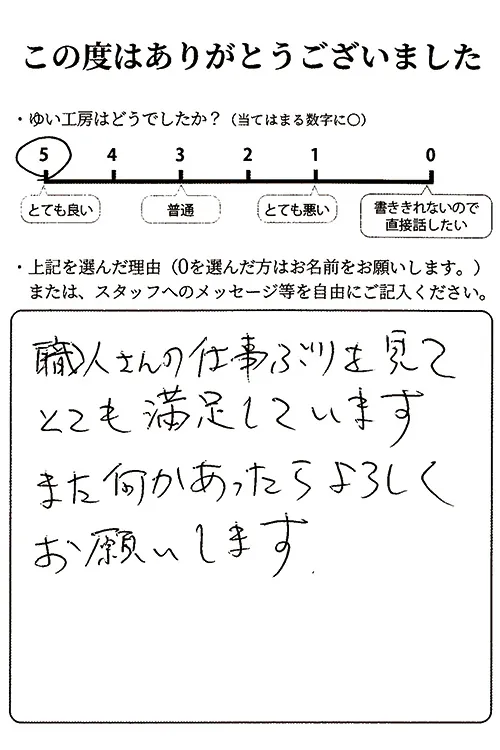 この度はありがとうございました
・ゆい工房はどうでしたか？（当てはまる数字に○）
5 4 3 2 1 0
とても良い 普通 とても悪い 書ききれないので
直接話したい
・上記を選んだ理由（0を選んだ方はお名前をお願いします。）
または、スタッフへのメッセージ等を自由にご記入ください。
職人さんの仕事ぶりを見て
とても満足しています
また何かあったらよろしく
お願いします